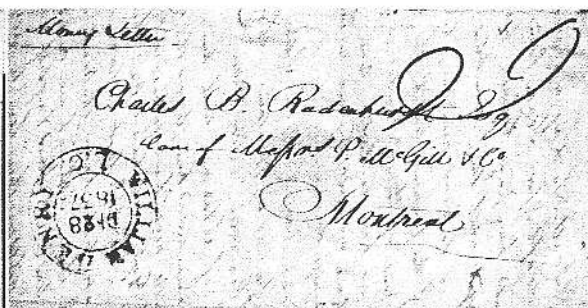 Money Letter
Charles B. Radenhurst Esq
Care of Messrs P. McGill & Co
Montreal
WILLIAM HENRY L.C.
28
1837